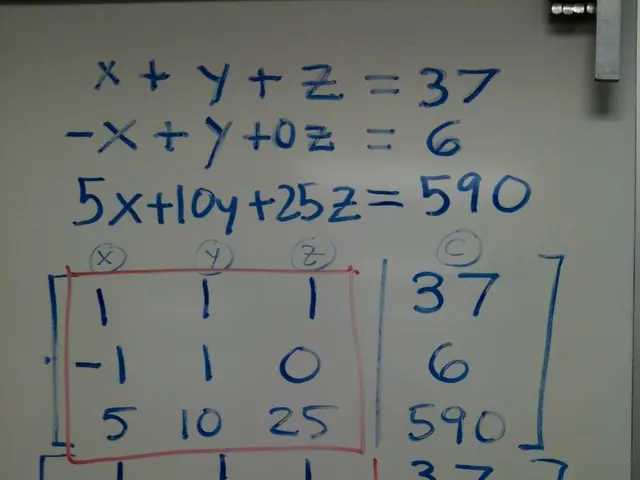 x + y + z = 37
-x + y + 0z = 6
5x + 10y + 25z = 590
x y z c
1 1 1 37
-1 1 0 6
5 10 25 590
1 1 1 37